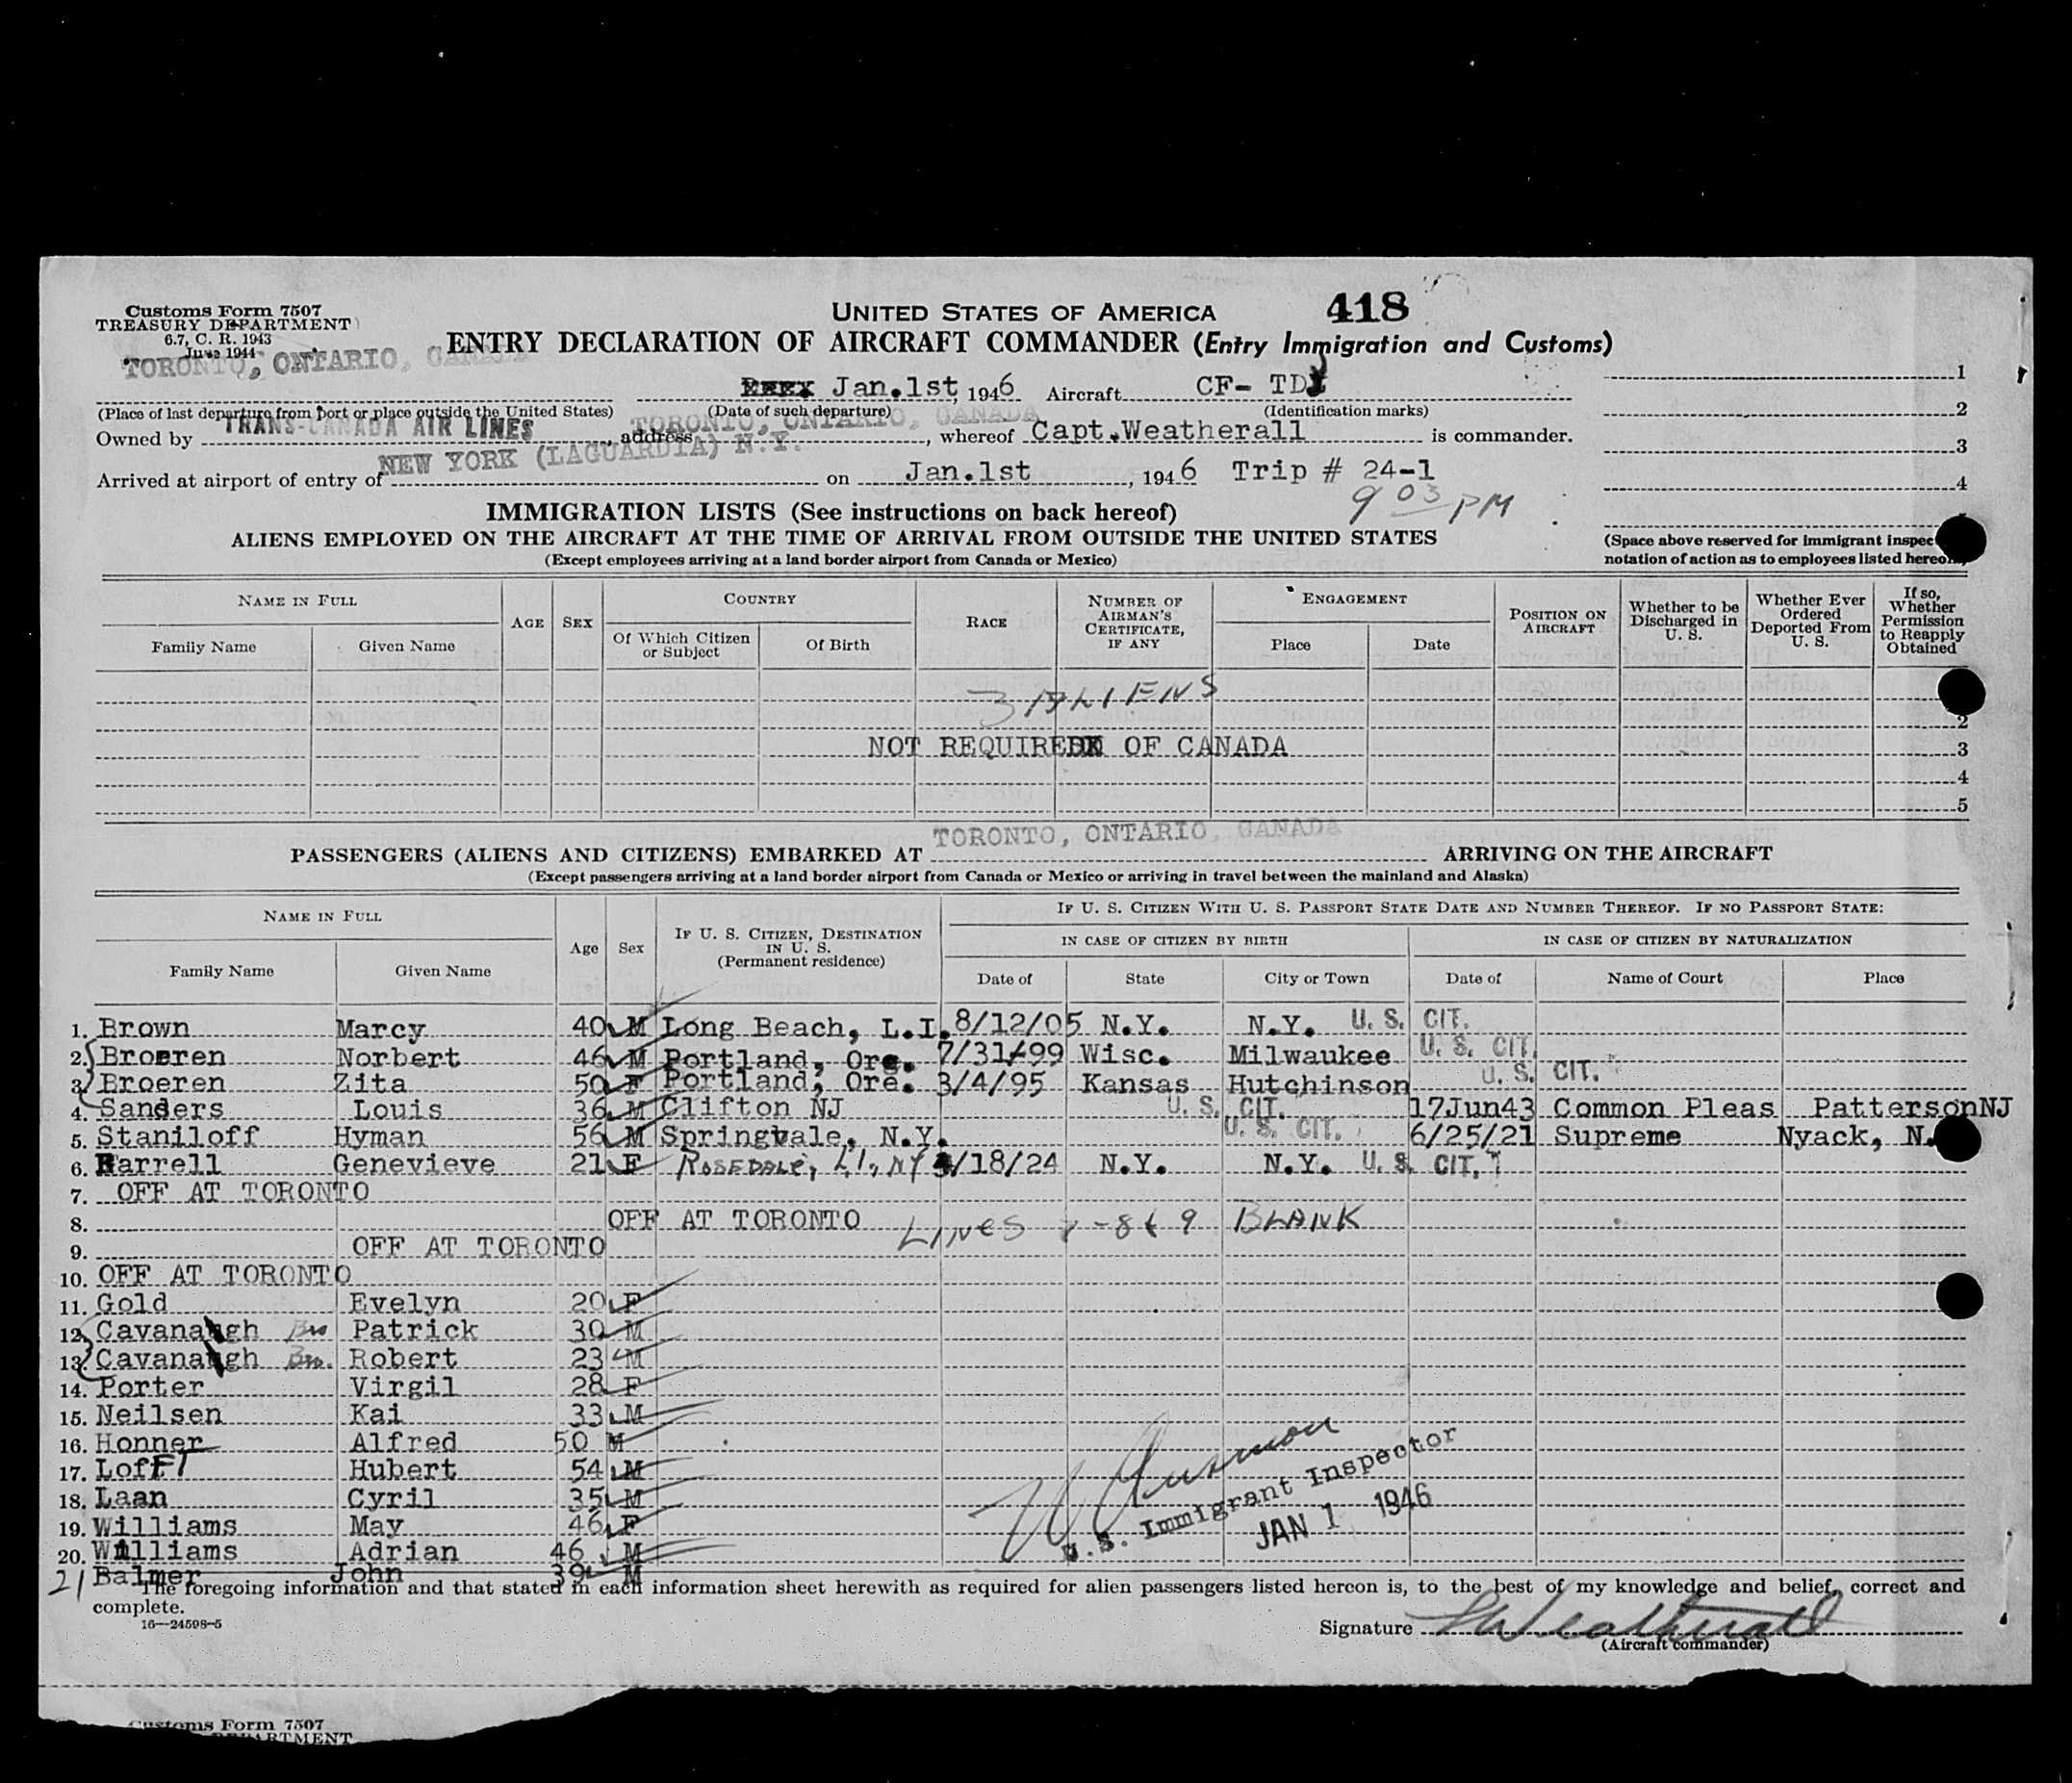 Customs Form 7507
TREASURY DEPARTMENT
6.7, C. R. 1943
June 1944
UNITED STATES OF AMERICA 418
ENTRY DECLARATION OF AIRCRAFT COMMANDER (Entry Immigration and Customs)
TORONTO, ONTARIO, CANADA
Jan.1st, 1946 Aircraft CF- TD
(Place of last departure from port or place outside the United States) (Date of such departure) (Identification marks)
Owned by TRANS-CANADA AIR LINES, address TORONTO, ONTARIO, CANADA, whereof Capt.Weatherall is commander.
Arrived at airport of entry of NEW YORK (LAGUARDIA) N.Y. on Jan.1st, 1946 Trip # 24-1
9 03 PM
1
2
3
4
IMMIGRATION LISTS (See instructions on back hereof)
ALIENS EMPLOYED ON THE AIRCRAFT AT THE TIME OF ARRIVAL FROM OUTSIDE THE UNITED STATES
(Except employees arriving at a land border airport from Canada or Mexico)
(Space above reserved for immigrant inspec
notation of action as to employees listed hereon.)
NAME IN FULL
Family Name Given Name
AGE SEX
COUNTRY
Of Which Citizen or Subject Of Birth
RACE
NUMBER OF AIRMAN'S CERTIFICATE, IF ANY
ENGAGEMENT
Place Date
POSITION ON AIRCRAFT
Whether to be Discharged in U. S.
Whether Ever Ordered Deported From U. S.
If so, Whether Permission to Reapply Obtained
3 ALIENS
2
NOT REQUIRED OF CANADA 3
4
5
PASSENGERS (ALIENS AND CITIZENS) EMBARKED AT TORONTO, ONTARIO, CANADA ARRIVING ON THE AIRCRAFT
(Except passengers arriving at a land border airport from Canada or Mexico or arriving in travel between the mainland and Alaska)
NAME IN FULL
Family Name Given Name
Age Sex
IF U. S. CITIZEN, DESTINATION IN U. S. (Permanent residence)
IF U. S. CITIZEN WITH U. S. PASSPORT STATE DATE AND NUMBER THEREOF. IF NO PASSPORT STATE:
IN CASE OF CITIZEN BY BIRTH IN CASE OF CITIZEN BY NATURALIZATION
Date of State City or Town Date of Name of Court Place
1. Brown Marcy 40 M Long Beach, L.I. 8/12/05 N.Y. N.Y. U. S. CIT.
2. Broeren Norbert 46 M Portland, Ore. 7/31/99 Wisc. Milwaukee U. S. CIT.
3. Broeren Zita 50 F Portland, Ore. 3/4/95 Kansas Hutchinson U. S. CIT.
4. Sanders Louis 36 M Clifton NJ U. S. CIT. 17Jun43 Common Pleas PattersonNJ
5. Staniloff Hyman 56 M Springvale, N.Y. U. S. CIT. 6/25/21 Supreme Nyack, N.
6. Farrell Genevieve 21 F ROSEDALE, L.I., NY /18/24 N.Y. N.Y. U. S. CIT.
7. OFF AT TORONTO
8. OFF AT TORONTO LINES 7-8 & 9 BLANK
9. OFF AT TORONTO
10. OFF AT TORONTO
11. Gold Evelyn 20 F
12. Cavanaugh Bro Patrick 30 M
13. Cavanaugh Bro. Robert 23 M
14. Porter Virgil 28 F
15. Neilsen Kai 33 M
16. Honner Alfred 50 M
17. LofFT Hubert 54 M
18. Laan Cyril 35 M
19. Williams May 46 F
20. Williams Adrian 46 M
21 Balmer John 39 M
U.S. Immigrant Inspector
JAN 1 1946
The foregoing information and that stated in each information sheet herewith as required for alien passengers listed hereon is, to the best of my knowledge and belief, correct and
complete.
16—24598-5
Signature Weatherall
(Aircraft commander)
Customs Form 7507